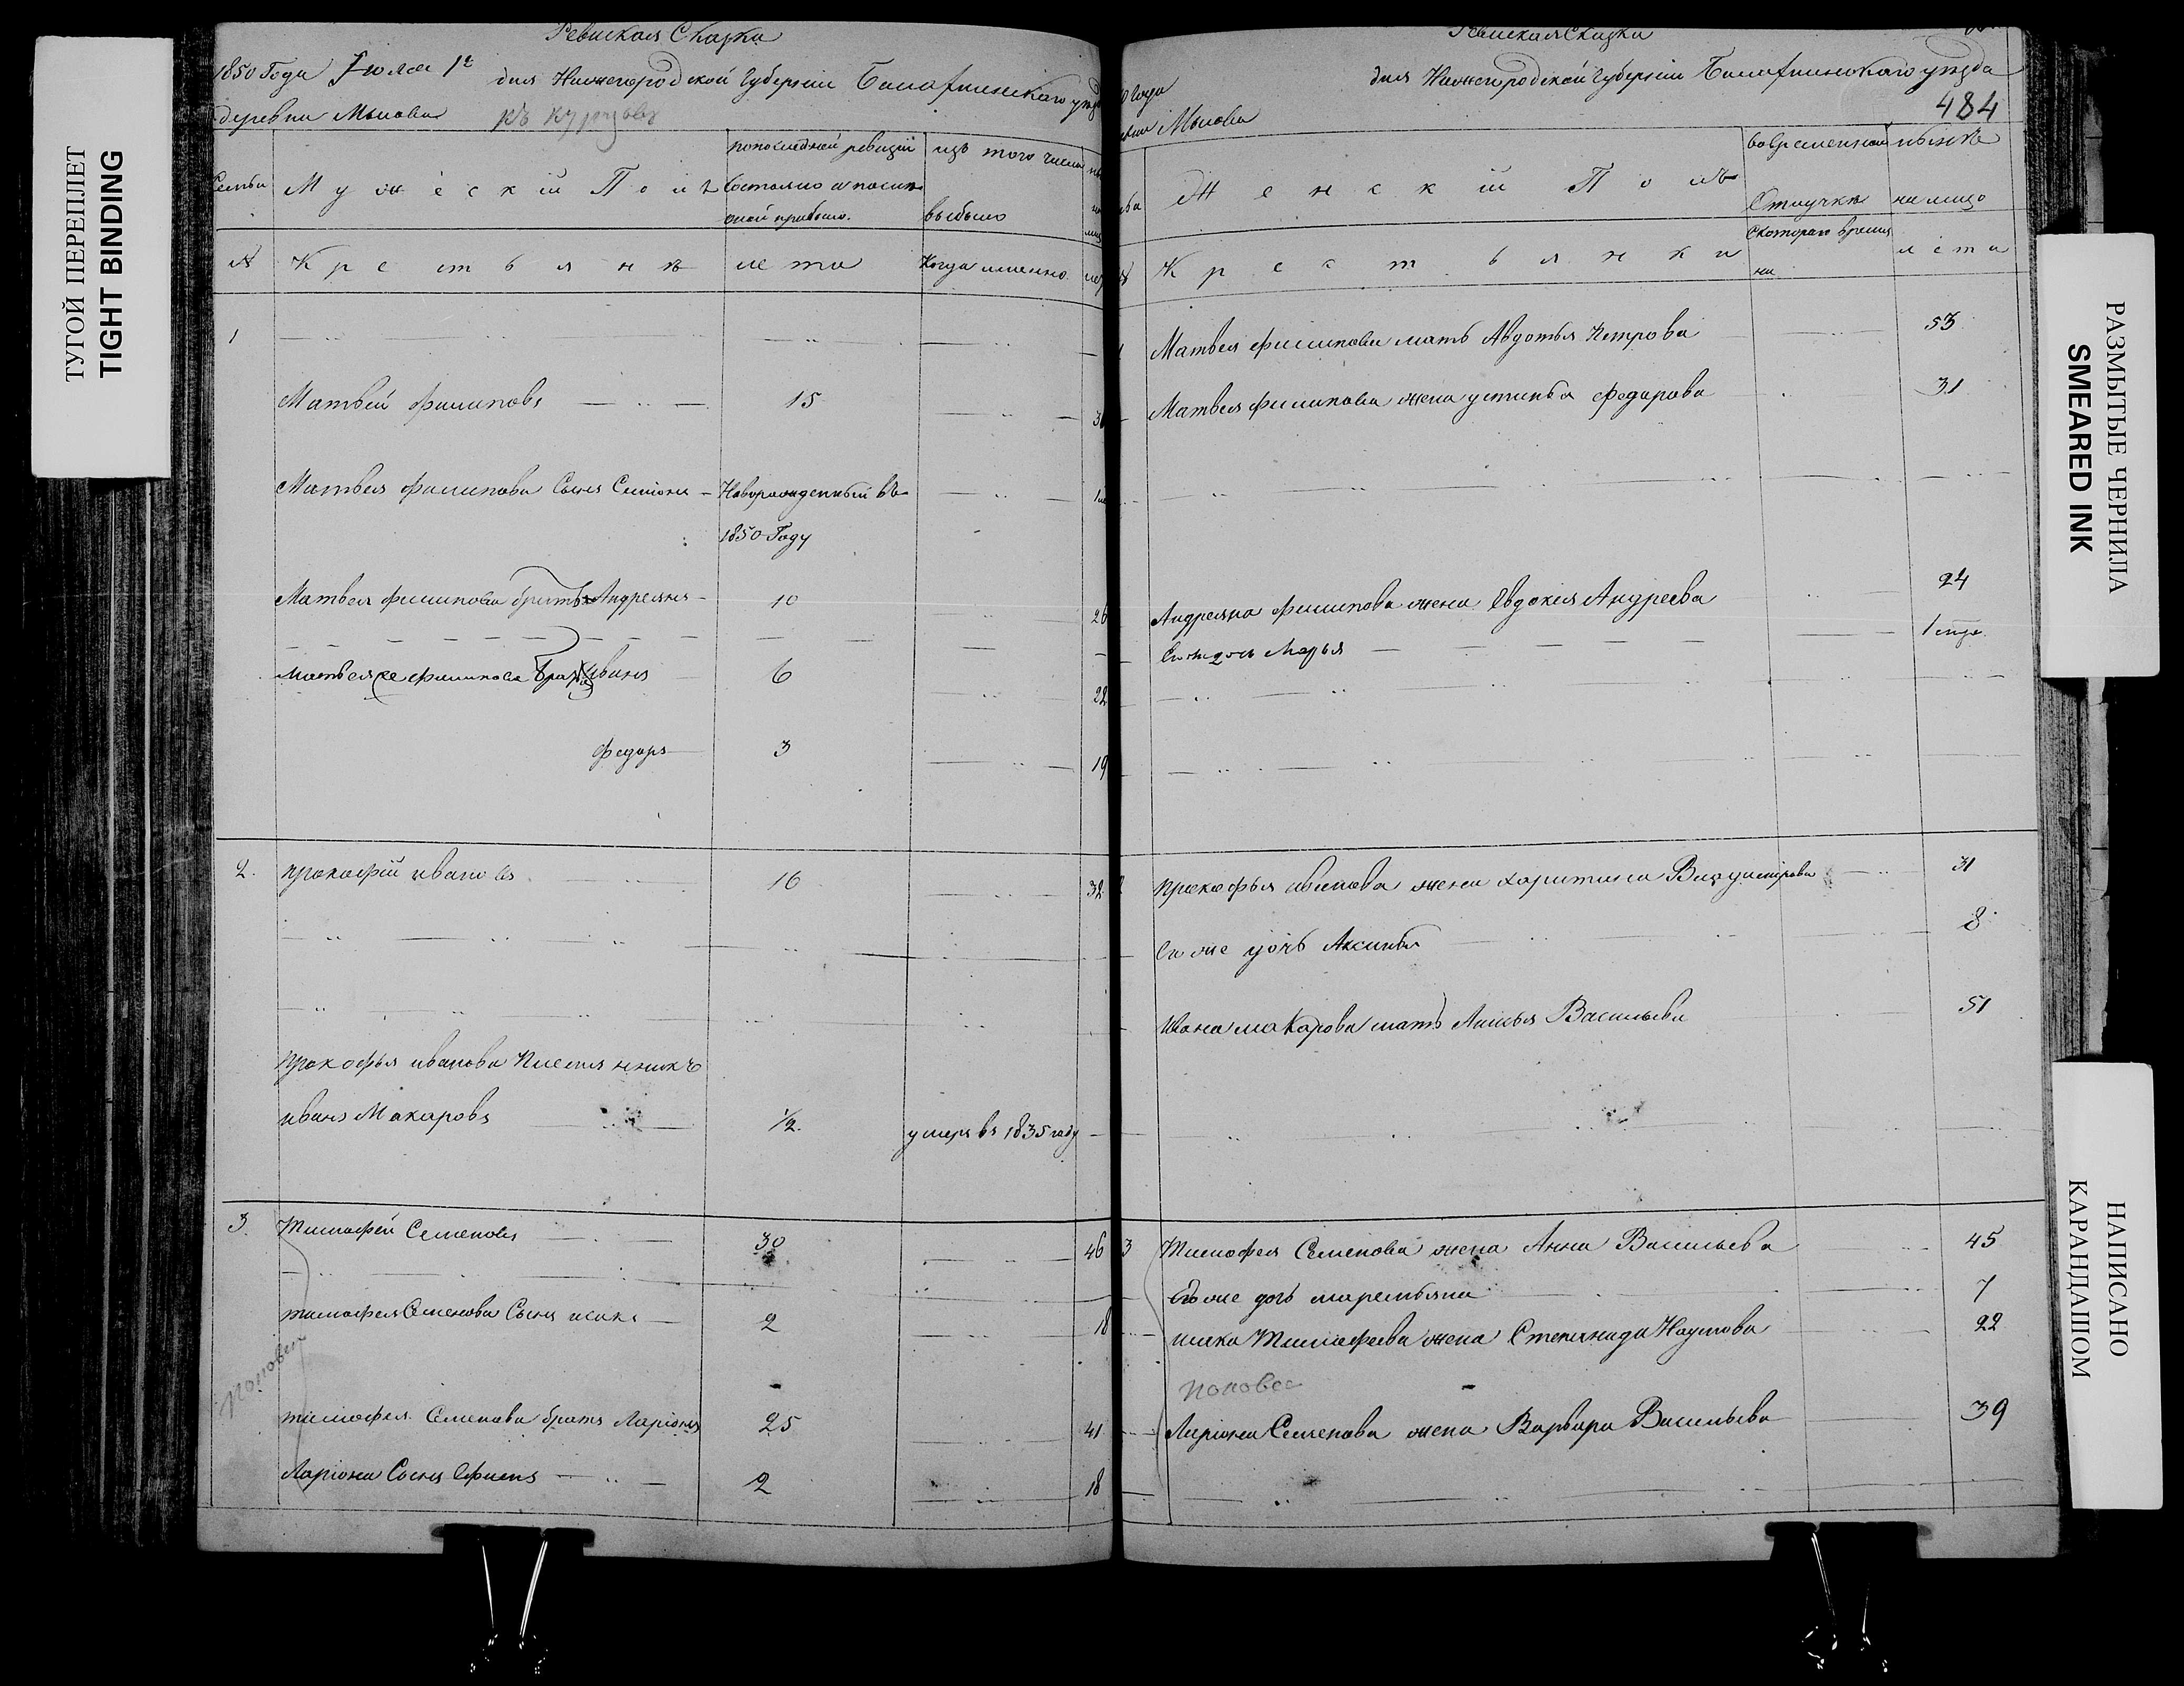 ТУГОЙ ПЕРЕПЛЕТ
TIGHT BINDING
Ревиская Сказка
1850 Года Июля 1го дня Нижегородской Губернии Балахнинского уезда
деревни Мысова
Семьи
Мужеский Полъ
попоследней ревизии
состояло и после
оной прибыло.
изъ того числа
выбыло
№
Крестьянъ
лета
Когда именно
1
Матвей филиповъ 15
Матвея филипова Сынъ Семионъ Новорожденный въ
1850 Году
Матвея филипова братья Андреянъ 10 26
Матвея же филипова братъ иванъ 6 22
Федоръ 3 19
2. прокофий ивановъ 16 32
прокофья иванова племянникъ
иванъ Макаровъ 1/2. умеръ въ 1835 году
3. Тимофей Семеновъ 30 46
тимофея Семенова Сынъ исакъ 2 18
тимофея Семенова братъ Ларионъ 25 41
Лариона Сынъ Ефимъ 2 18
Ревиская Сказка
года дня Нижегородской Губернии Балахнинского уезда
Мысова
484
Женский Полъ
во временной
Отлучке
ныне
на лицо
№
Крестьянки
С котораго времени
лета
Матвея филипова мать Авдотья Петрова 53
Матвея филипова жена устинья федарова 31
Андреяна филипова жена Евдокия Андреева 24
Ево же дочь Марья
прокофья иванова жена харитина Владимирова 31
Ево же дочь Аксинья 8
Ивана макарова мать Васильева 51
3 Тимофея Семенова жена Анна Васильева 45
Ево же дочь маремьяна 7
исака Тимофеева жена Степанида Наумова 22
Лариона Семенова жена Варвара Васильева 39
РАЗМЫТЫЕ ЧЕРНИЛА
SMEARED INK
НАПИСАНО
КАРАНДАШОМ